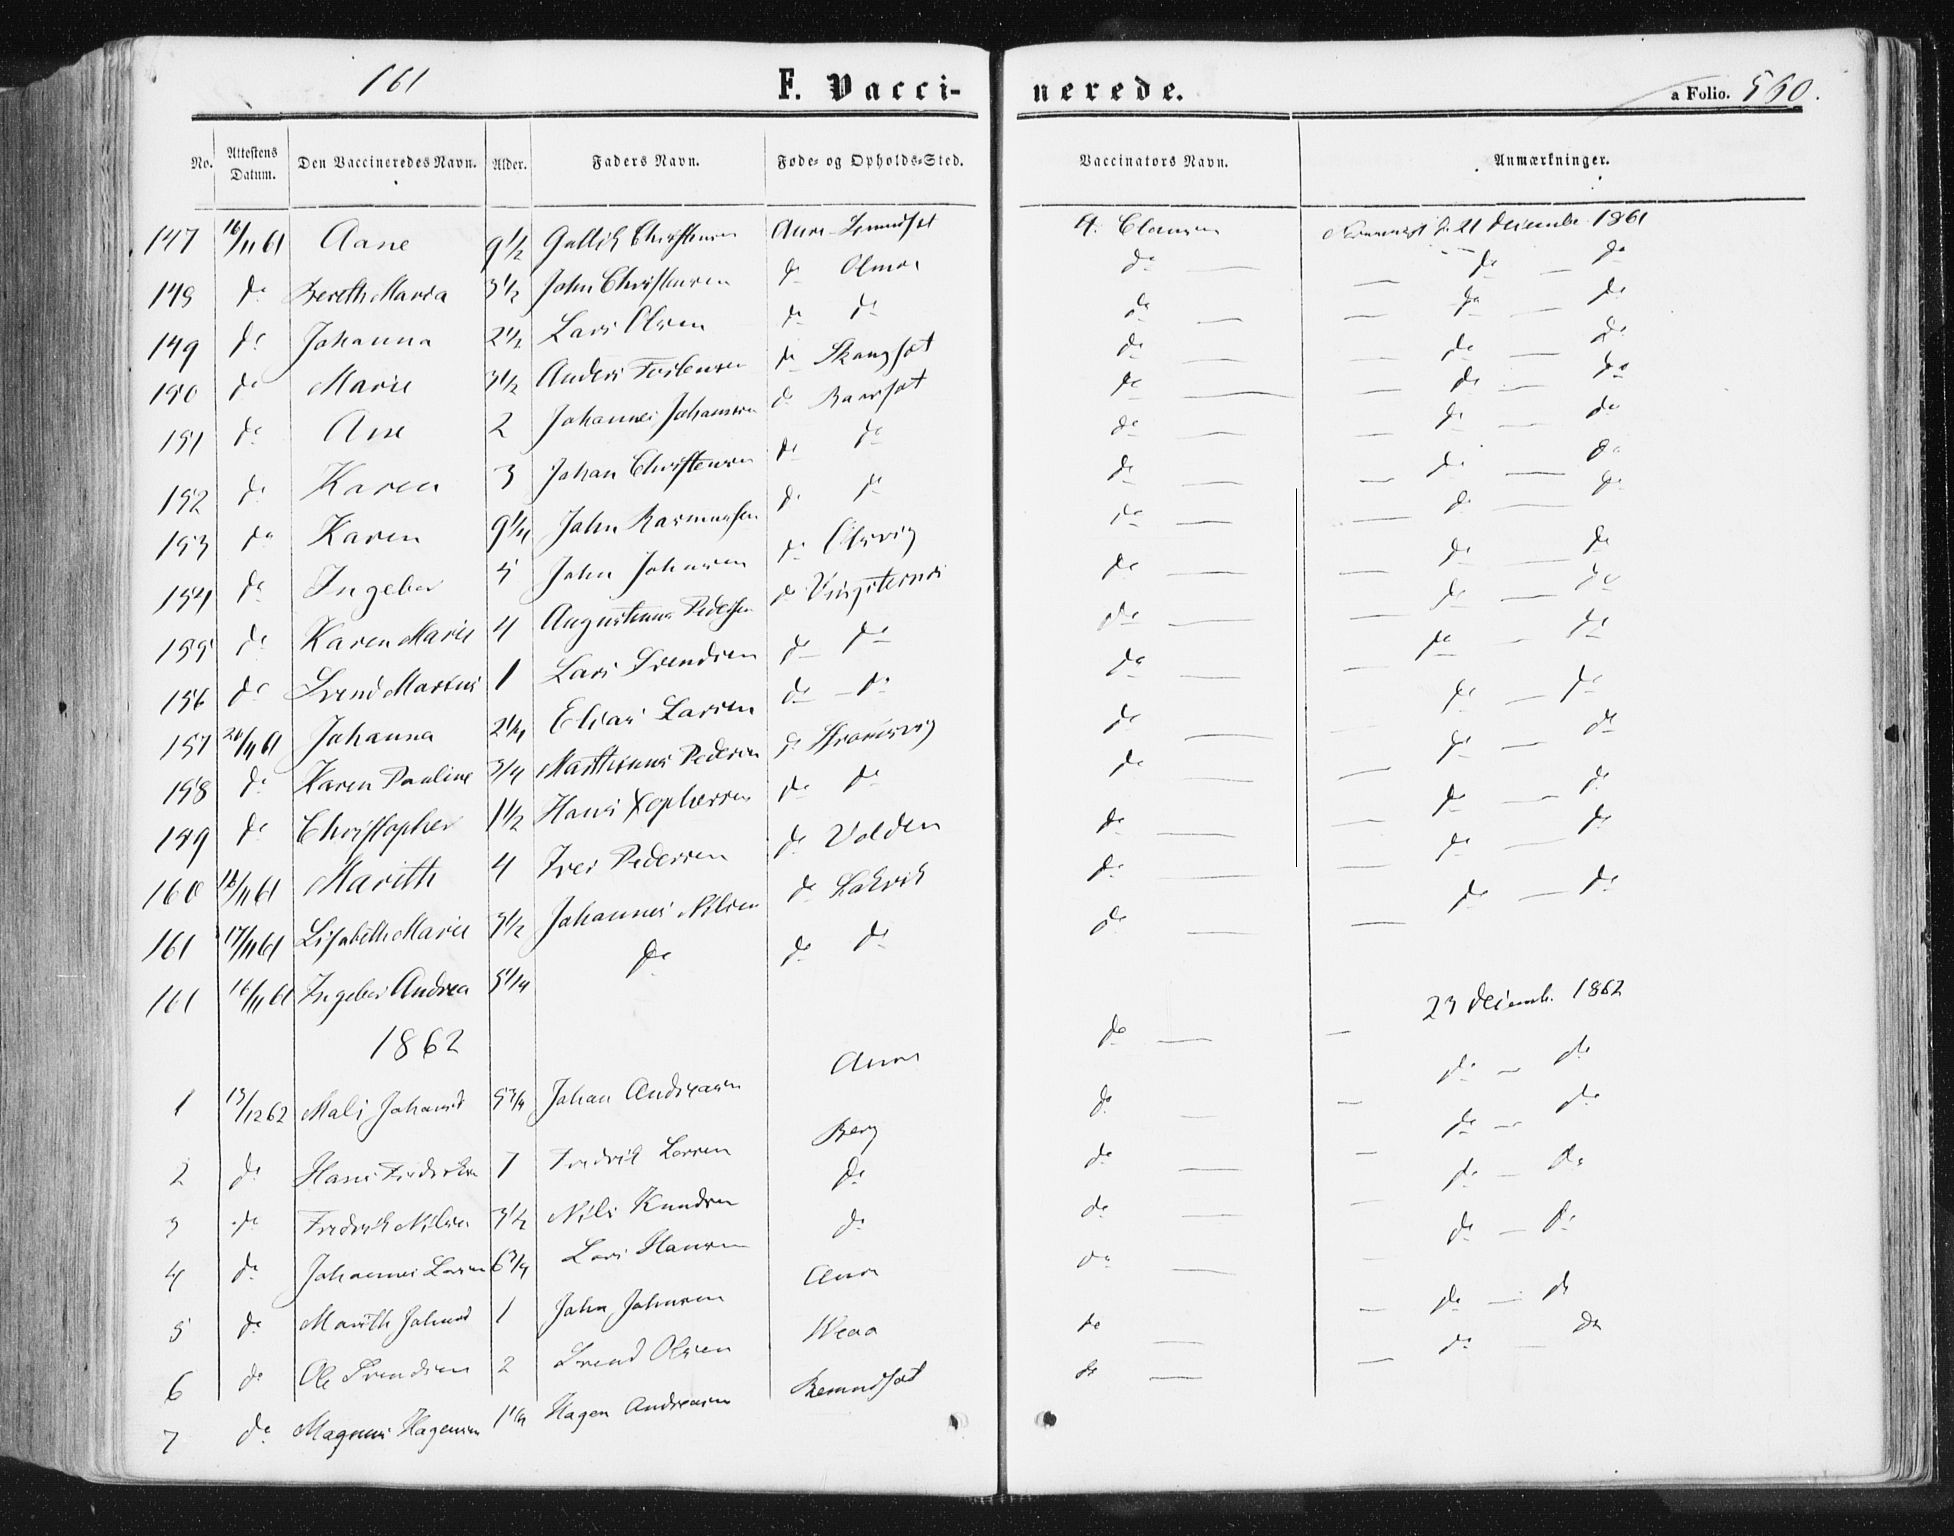 161 F. Vacci- nerede. a Folio. 560.
No. Attestens Datum. Den Vaccineredes Navn. Alder. Faders Navn. Føde- og Opholds-Sted. Vaccinators Navn. Anmærkninger.
147 16/11 61 Aane 9 1/2 Christensen Aure A. Clausen 21 December 1861
148 do Bereth Maria 3 1/2 John Christensen do do do do
149 do Johanna 2 1/2 Lars Olsen do do do do do
150 do Marie 3 1/2 Anders Torstensen do Skaugset do do do
151 do Ane 2 Johannes Johansen do do do do
152 do Karen 3 Johan Christensen do do do do do
153 do Karen 9 1/4 John Rasmussen do do do do do
154 do Ingebor 5 John Johnsen do do do do
155 do Karen Marie 4 Augustinus Pedersen do do do do
156 do Svend Markus 1 Lars Svendsen do do do do do
157 26/11 61 Johanna 2 1/4 Elias Larsen do do do do do
158 do Karen Pauline 3/4 Matheus Pedersen do do do do
159 do Christopher 1 1/2 Hans Xophersen do do do do do
160 16/11 61 Marith 4 Iver Pedersen do Volden do do do
161 17/11 61 Lisabeth Marie 3 1/2 Johannes Nilsen do Lakvik do do do
161 16/11 61 Ingebor Andrea 5 1/4 do do do do
1862 23 Decemb. 1862
1 13/12 62 Mali Johansd 5 3/4 Johan Andreasen Aure do do do
2 do Hans Fredriksen 7 Fredrik Larsen Berg do do do
3 do Fredrik Nilsen 3 1/2 Nils Knudsen do do do do
4 do Johannes Larsen 6 3/4 Lars Hansen do do do do
5 do Marith Johnsd 1 John Johnsen Aure do do do
6 do Ole Svendsen 2 Svend Olsen do do do
7 do Magnus Hagensen 1 1/4 Hagen Andreasen Remmdset do